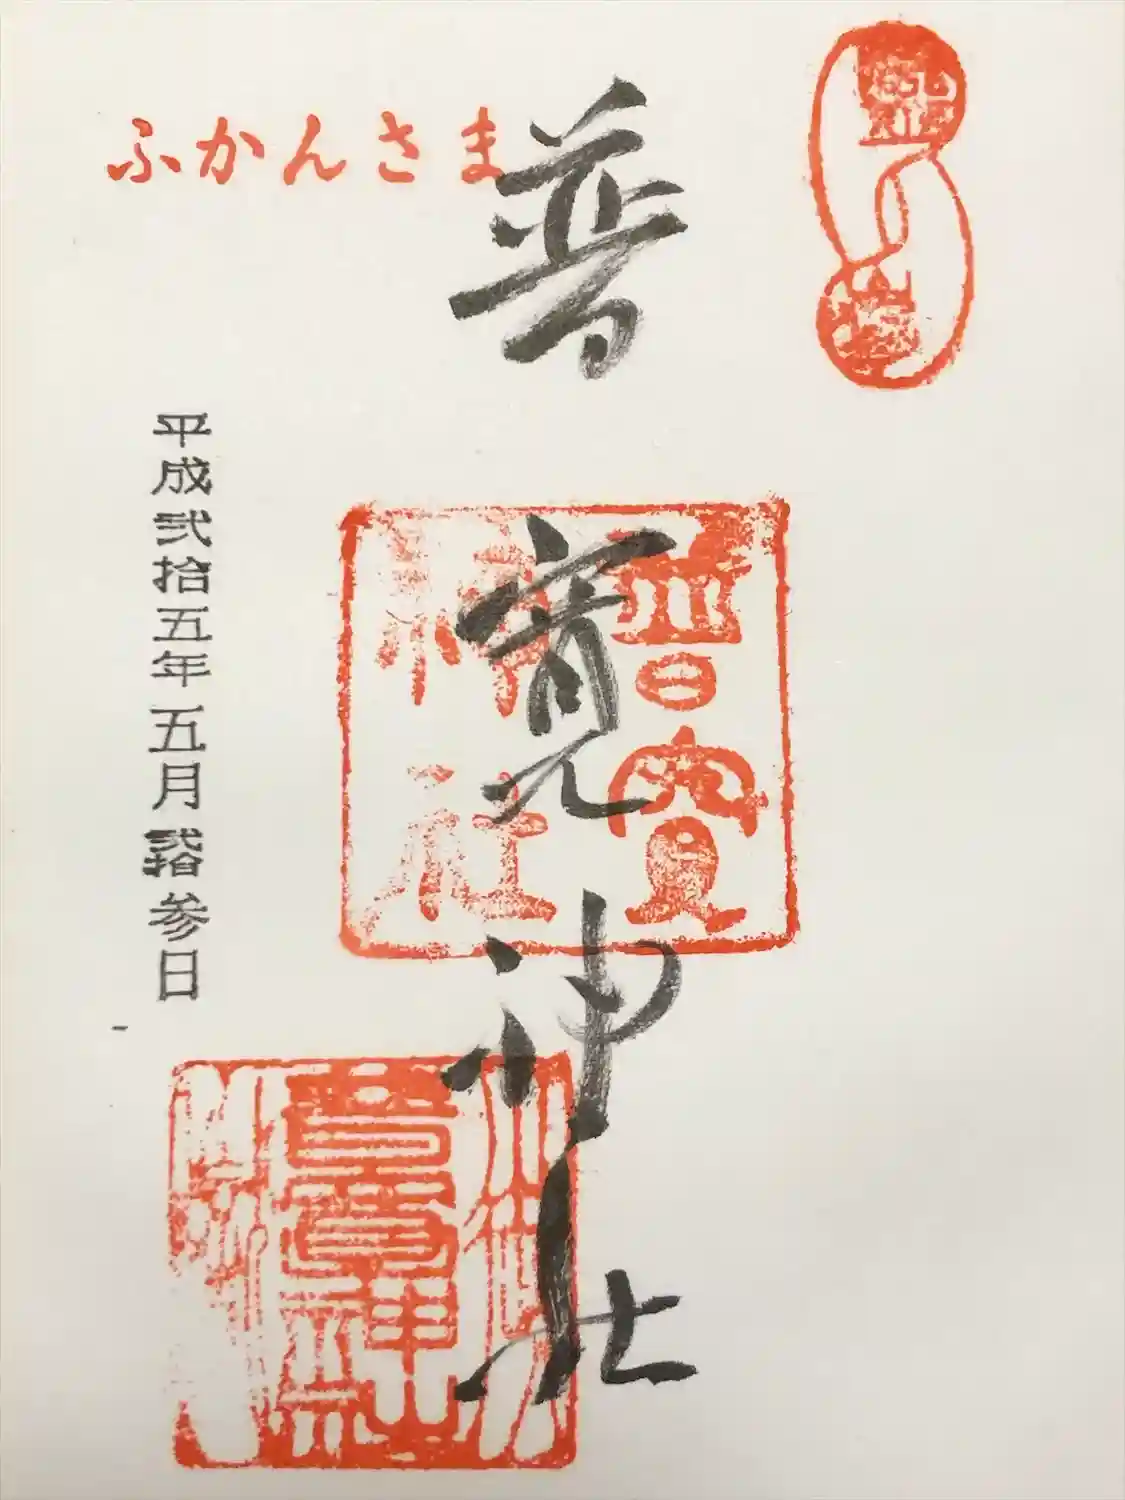 普寛神社
普寛
神社
ふかんさま
平成弐拾五年五月弐拾参日